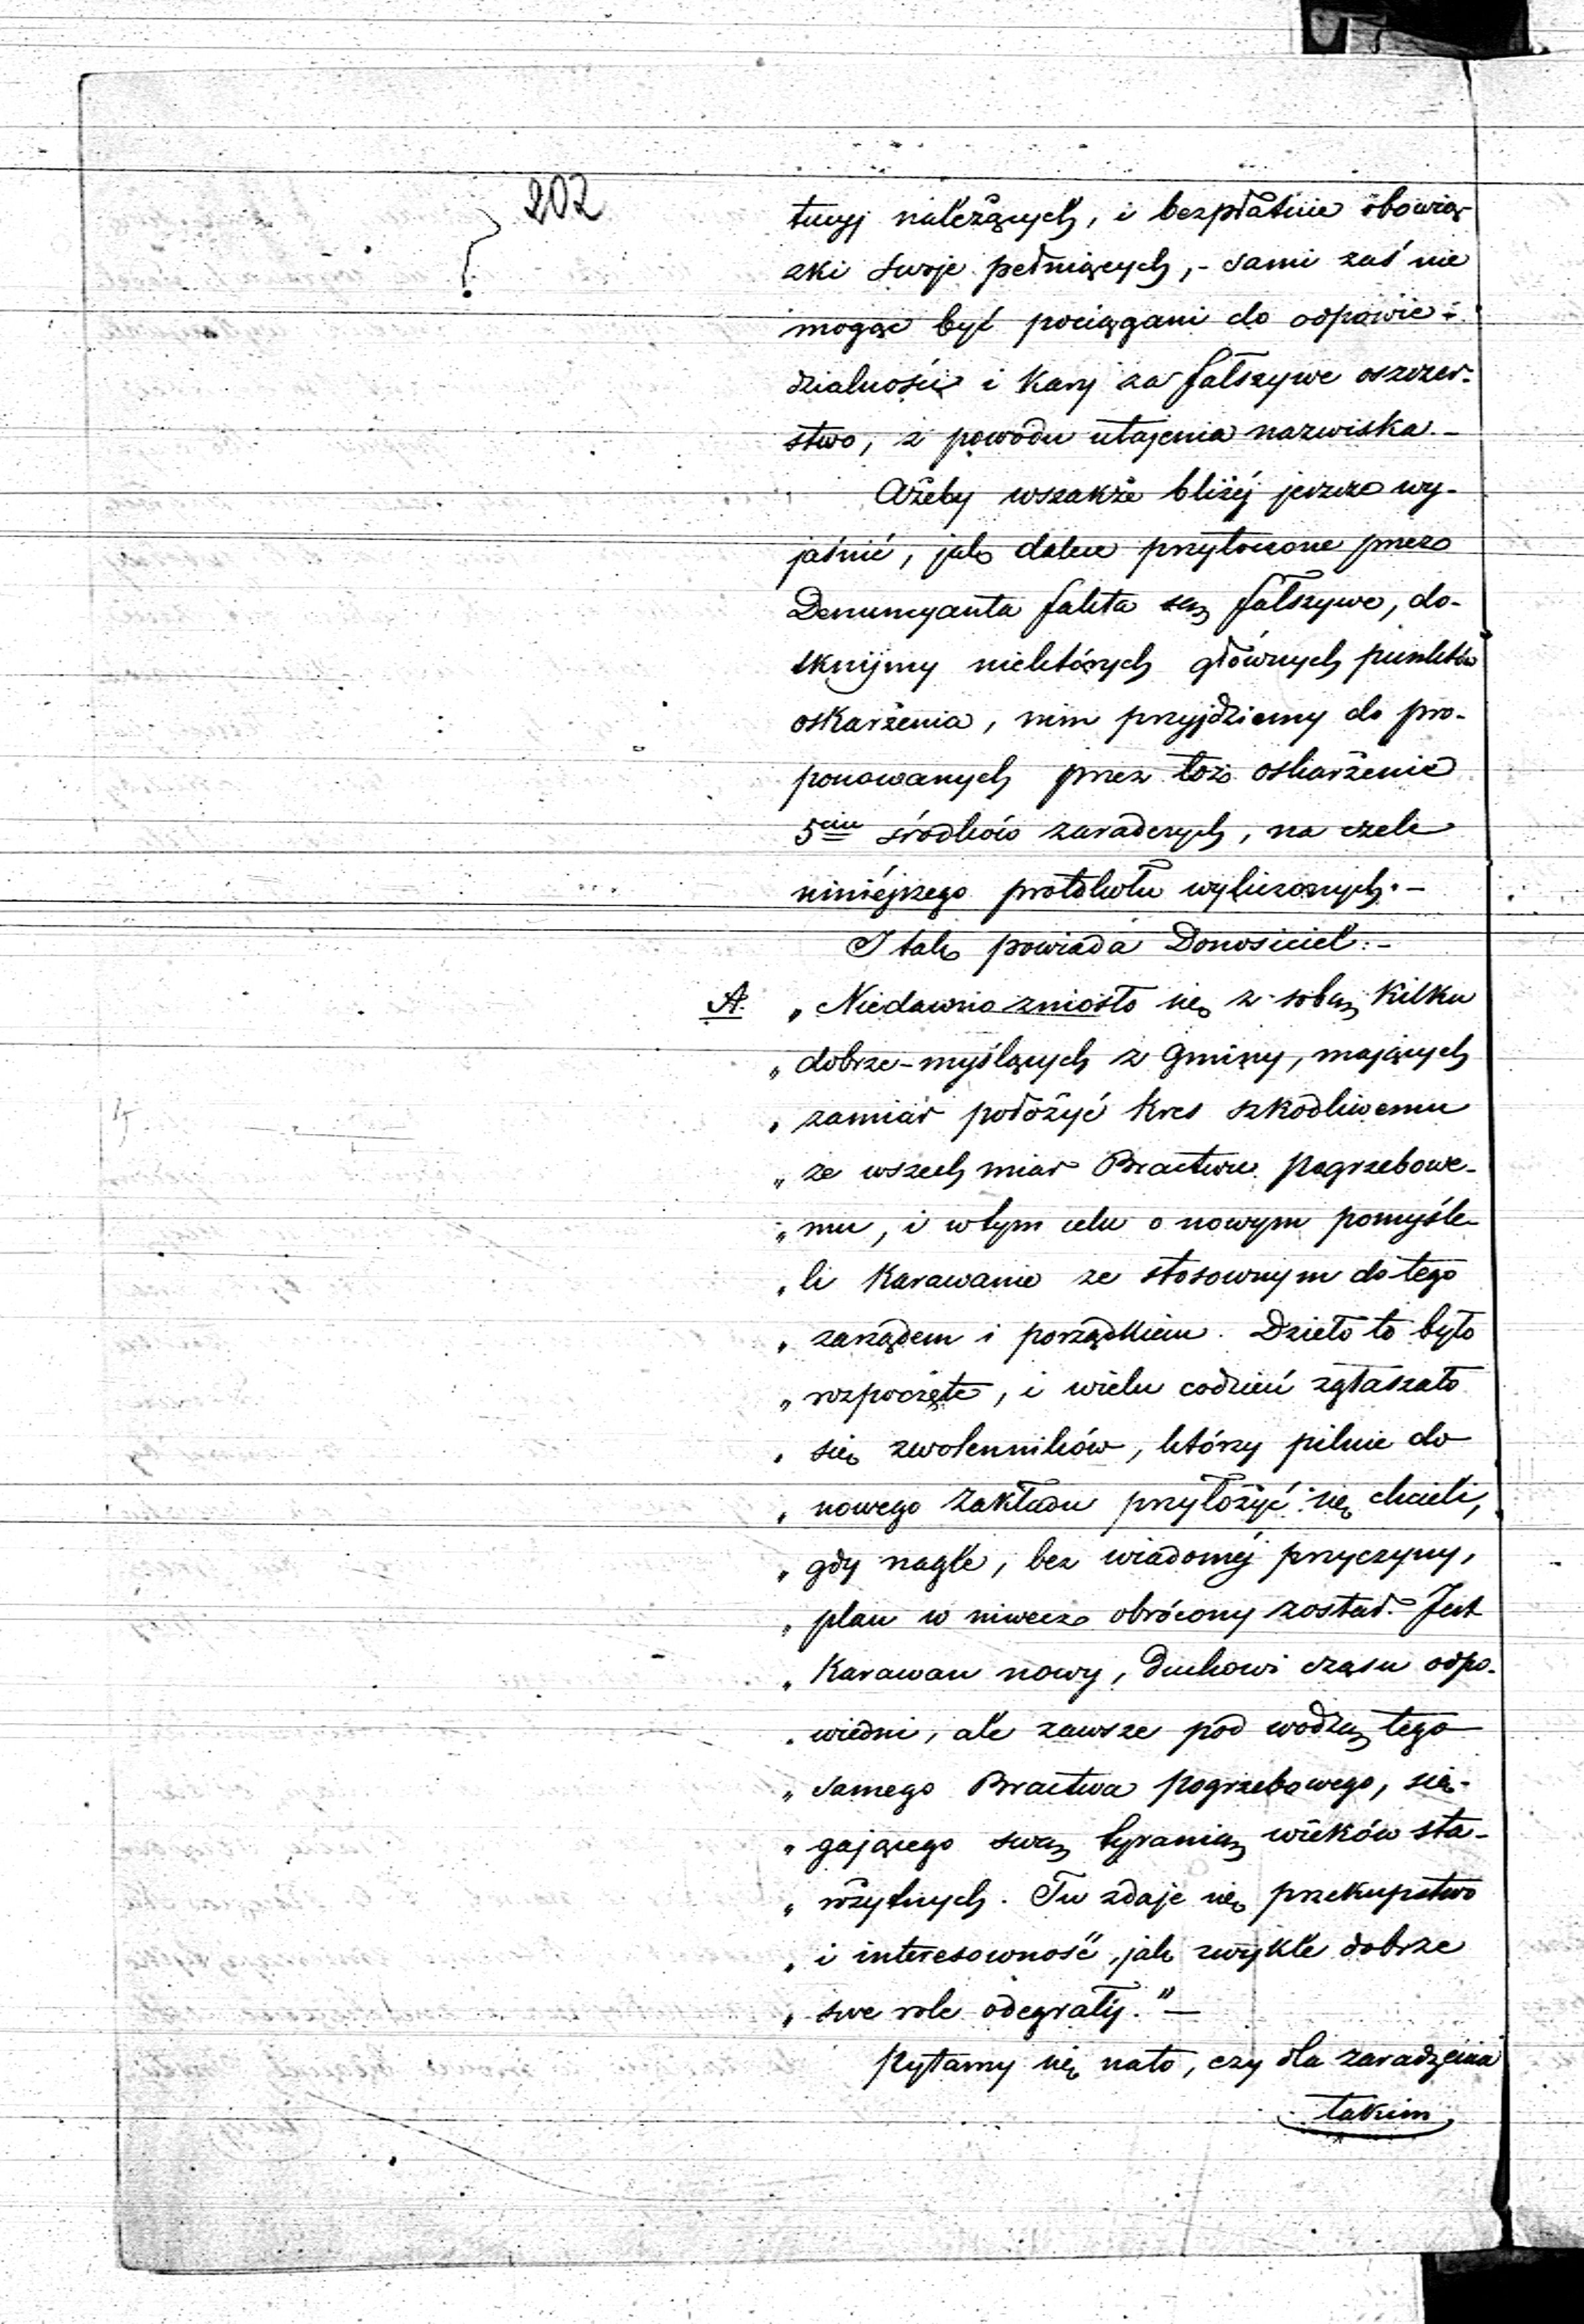 202
tucyj należących, i bezpłatnie obowią-
zki swoje pełniących, - sami zaś nie
mogąc być pociągani do odpowie-
dzialności i kary za fałszywe oszczer-
stwo, z powodu utajenia nazwiska. -
Ażeby wszakże bliżéj jeszcze wy-
jaśnić, jak dalece przytoczone przez
Denuncyanta fakta są fałszywe, do-
tknijmy niektórych głównych punktów
oskarżenia, nim przyjdziemy do pro-
ponowanych przez toż oskarżenie
5ciu środków zaradczych, na czele
niniéjszego protokółu wyliczonych. -
I tak powiada Donosiciel: -
A. „Niedawno zniosło się z sobą kilku
„dobrze-myślących z Gminy, mających
„zamiar położyć kres szkodliwemu
„ze wszech miar Bractwu pogrzebowe-
„mu, i w tym celu o nowym pomyśle-
„li Karawanie ze stosownym do tego
„zarządem i porządkiem. Dzieło to było
„rozpoczęte, i wielu codzień zgłaszało
„się zwolenników, którzy pilnie do
„nowego Zakładu przyłożyć się chcieli,
„gdy nagle, bez wiadoméj przyczyny,
„plan w niwecz obrócony został. Jest
„Karawan nowy, duchowi czasu odpo-
„wiedni, ale zawsze pod wodzą tego
„samego Bractwa pogrzebowego, się-
„gającego swą tyranią wieków sta-
„rożytnych. Tu zdaje się przekupstwo
„i interesowność, jak zwykle dobrze
„swe role odegrały." -
Pytamy się nato, czy dla zaradzenia
takim